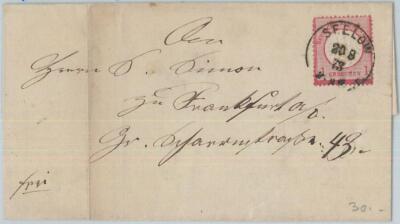 An
Herrn S. Simon
zu Frankfurt a/o.
Gr. Scharrnstraße 43.
frei
SEELOW
20 8
73
1
GROSCHEN
30.-